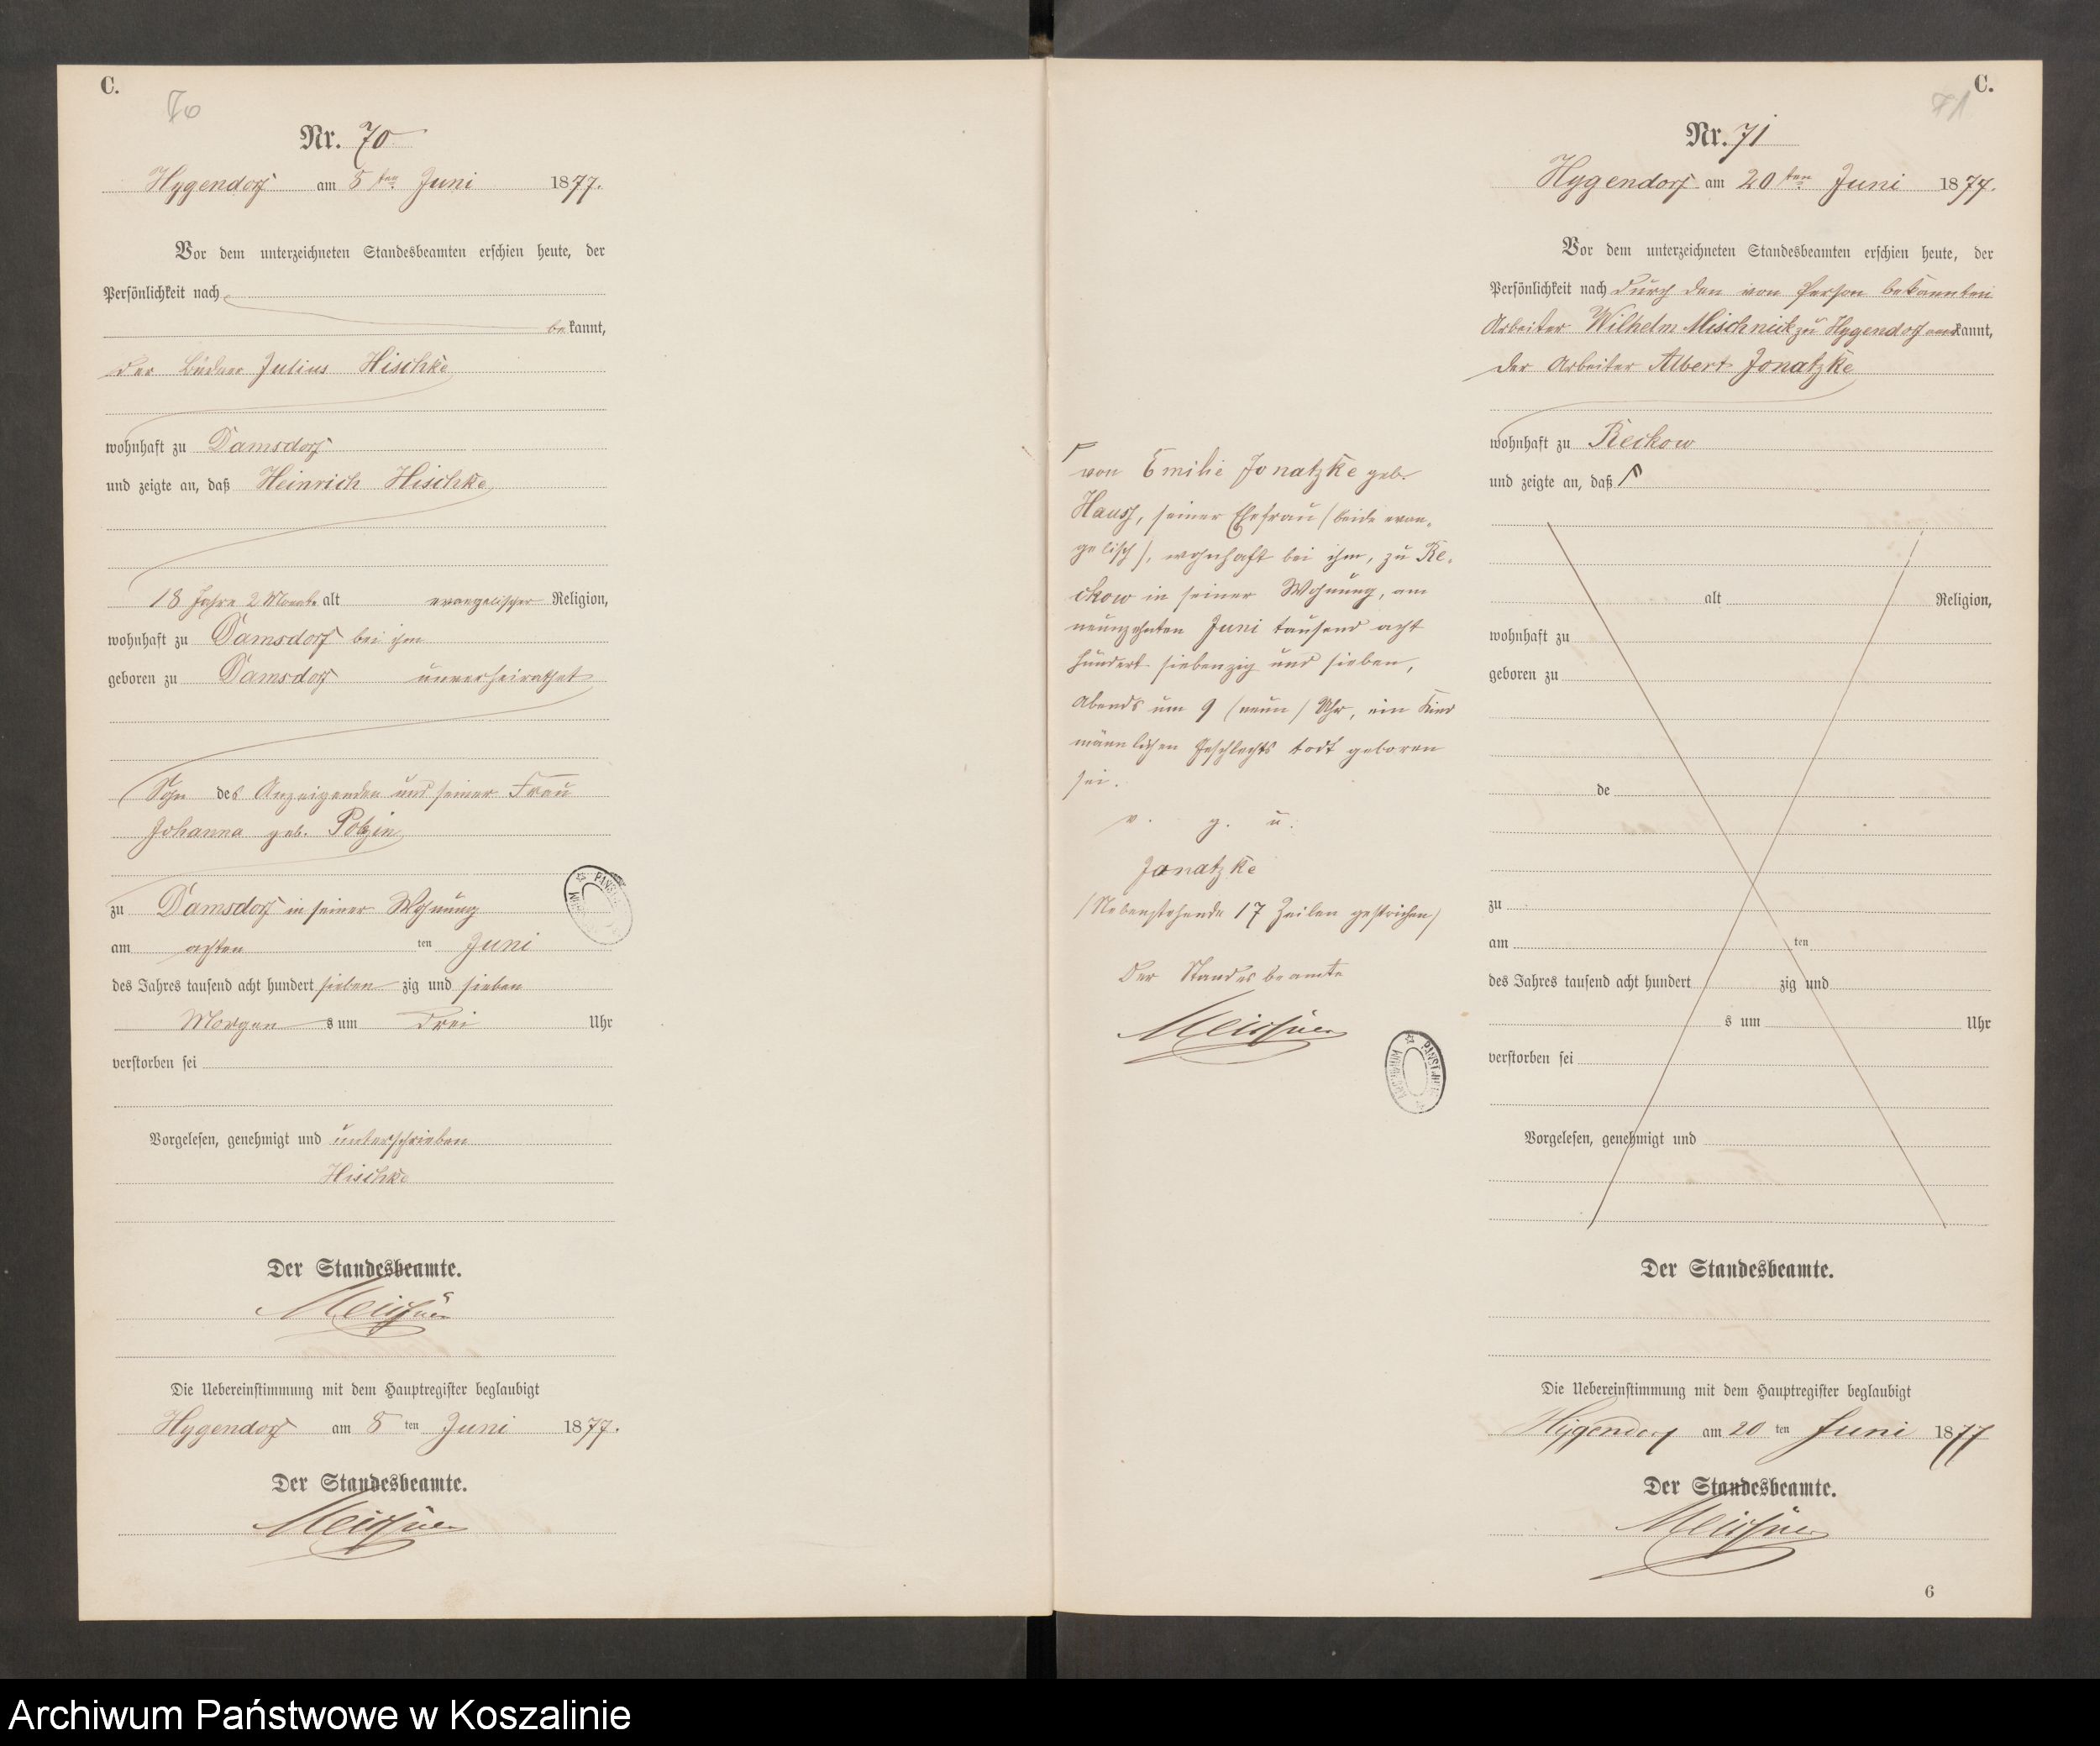 C.
70
Nr. 70
Hygendorf am 8 ten Juni 1877.
Vor dem unterzeichneten Standesbeamten erschien heute, der
Persönlichkeit nach
bekannt,
der Büdner Julius Hischke
wohnhaft zu Damsdorf
und zeigte an, daß Heinrich Hischke
18 Jahre 2 Monate alt evangelischer Religion,
wohnhaft zu Damsdorf bei ihm
geboren zu Damsdorf unverheirathet
Sohn des Anzeigenden und seiner Frau
Johanna geb. Polzin
zu Damsdorf in seiner Wohnung
am achten ten Juni
des Jahres tausend acht hundert sieben zig und sieben
Morgen s um drei Uhr
verstorben sei
Vorgelesen, genehmigt und unterschrieben
Hischke
Der Standesbeamte.
Die Uebereinstimmung mit dem Hauptregister beglaubigt
Hygendorf am 8 ten Juni 1877.
Der Standesbeamte.
von Emilie Jonatzke geb.
seiner Ehefrau (beide evan-
gelisch), wohnhaft bei ihm, zu Re-
ckow in seiner Wohnung, am
neunzehnten Juni tausend acht
hundert siebenzig und sieben,
Abends um 9 (neun) Uhr, ein Kind
männlichen Geschlechts todt geboren
sei.
v. g. u.
Jonatzke
(Nebenstehende 17 Zeilen gestrichen)
Der Standesbeamte
C.
71
Nr. 71
Hygendorf am 20 ten Juni 1877.
Vor dem unterzeichneten Standesbeamten erschien heute, der
Persönlichkeit nach durch den von Person bekannten
Arbeiter Wilhelm Mischnick zu Hygendorf anerkannt,
der Arbeiter Albert Jonatzke
wohnhaft zu Reckow
und zeigte an, daß
alt Religion,
wohnhaft zu
geboren zu
de
zu
am ten
des Jahres tausend acht hundert zig und
s um Uhr
verstorben sei
Vorgelesen, genehmigt und
Der Standesbeamte.
Die Uebereinstimmung mit dem Hauptregister beglaubigt
Hygendorf am 20 ten Juni 1877
Der Standesbeamte.
6
Archiwum Państwowe w Koszalinie